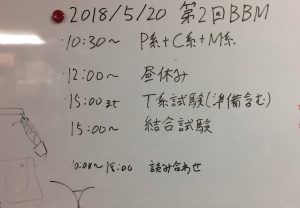 2018/5/20 第2回BBM
・10:30〜 P系+C系+M系
・12:00〜 昼休み
・15:00まで T系試験(準備含む)
・15:00〜 結合試験
〜18:00 読み合わせ